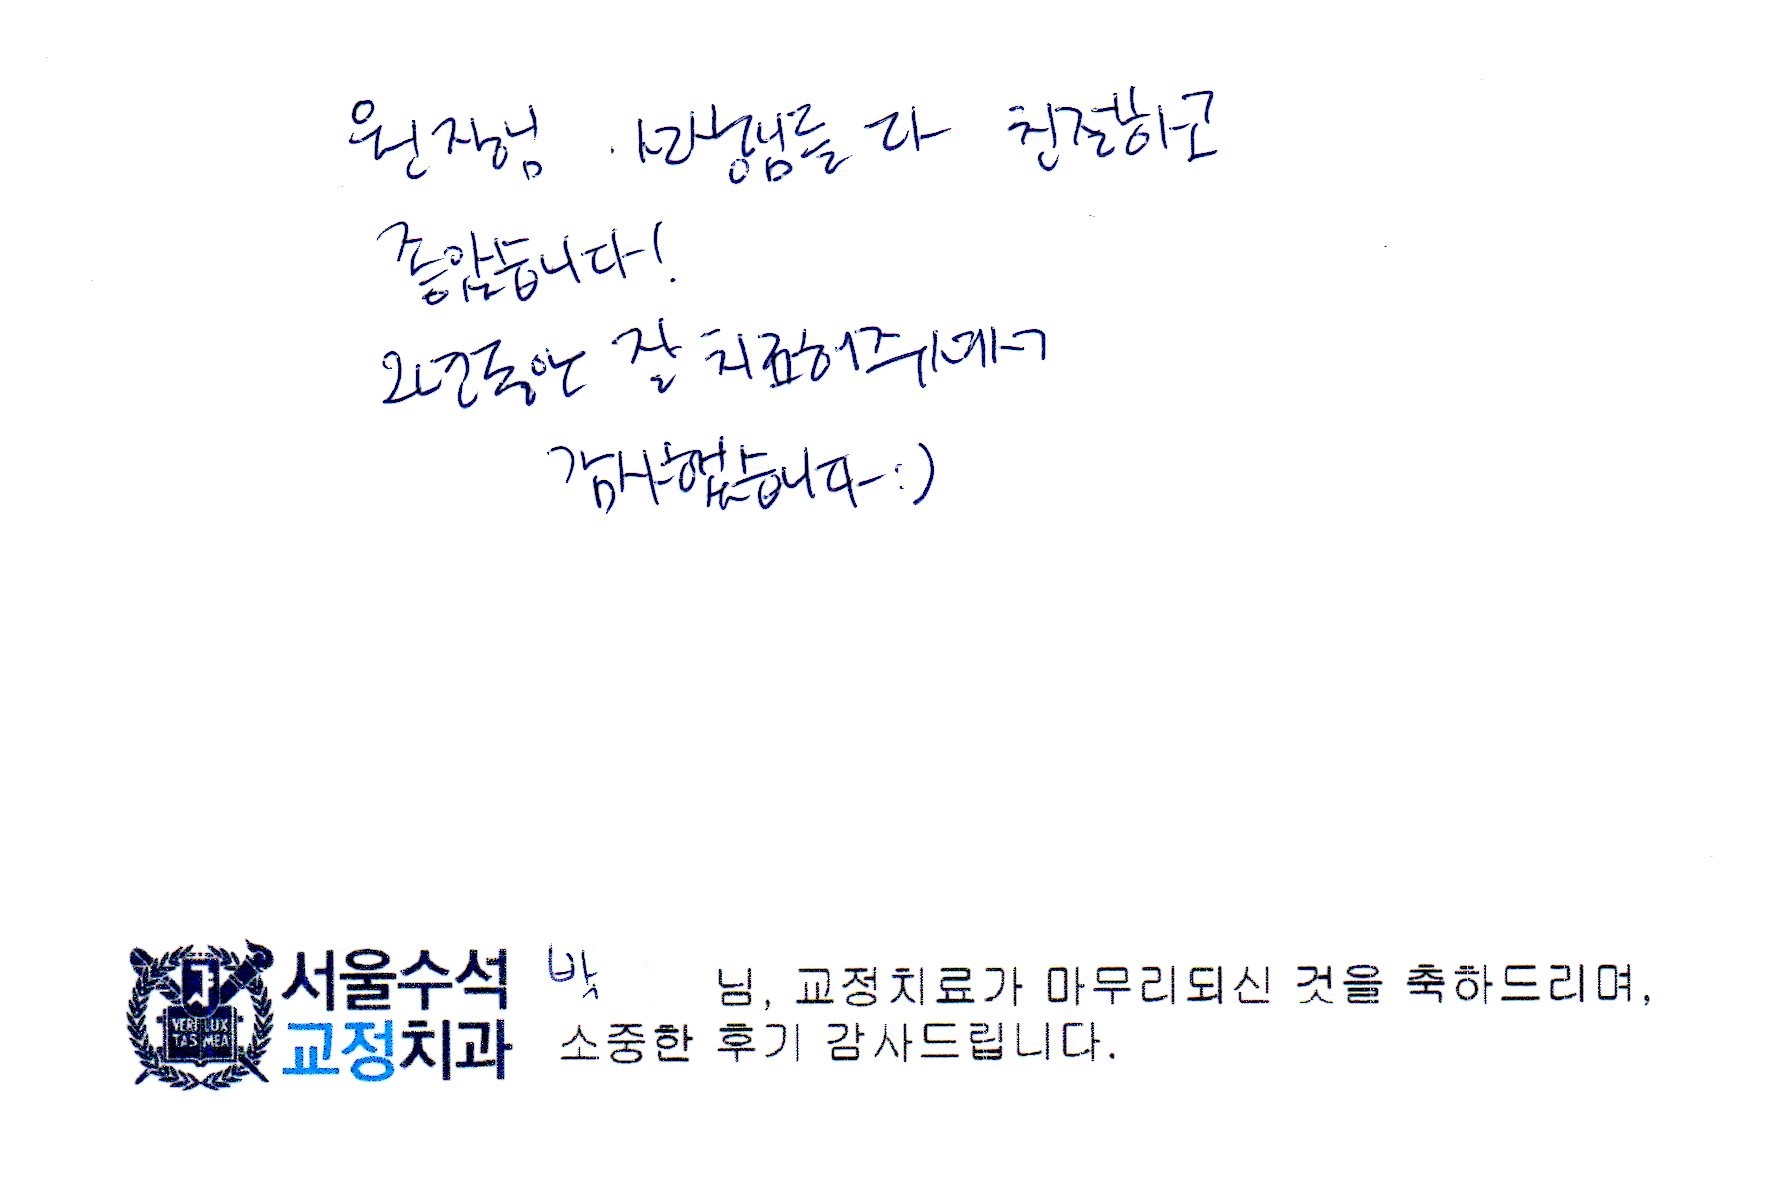 원장님, 선생님들 다 친절하고
좋았습니다!
2년동안 잘 치료해주셔서
감사했습니다 :)
VERI LUX
TAS MEA
서울수석
교정치과
박 님, 교정치료가 마무리되신 것을 축하드리며,
소중한 후기 감사드립니다.